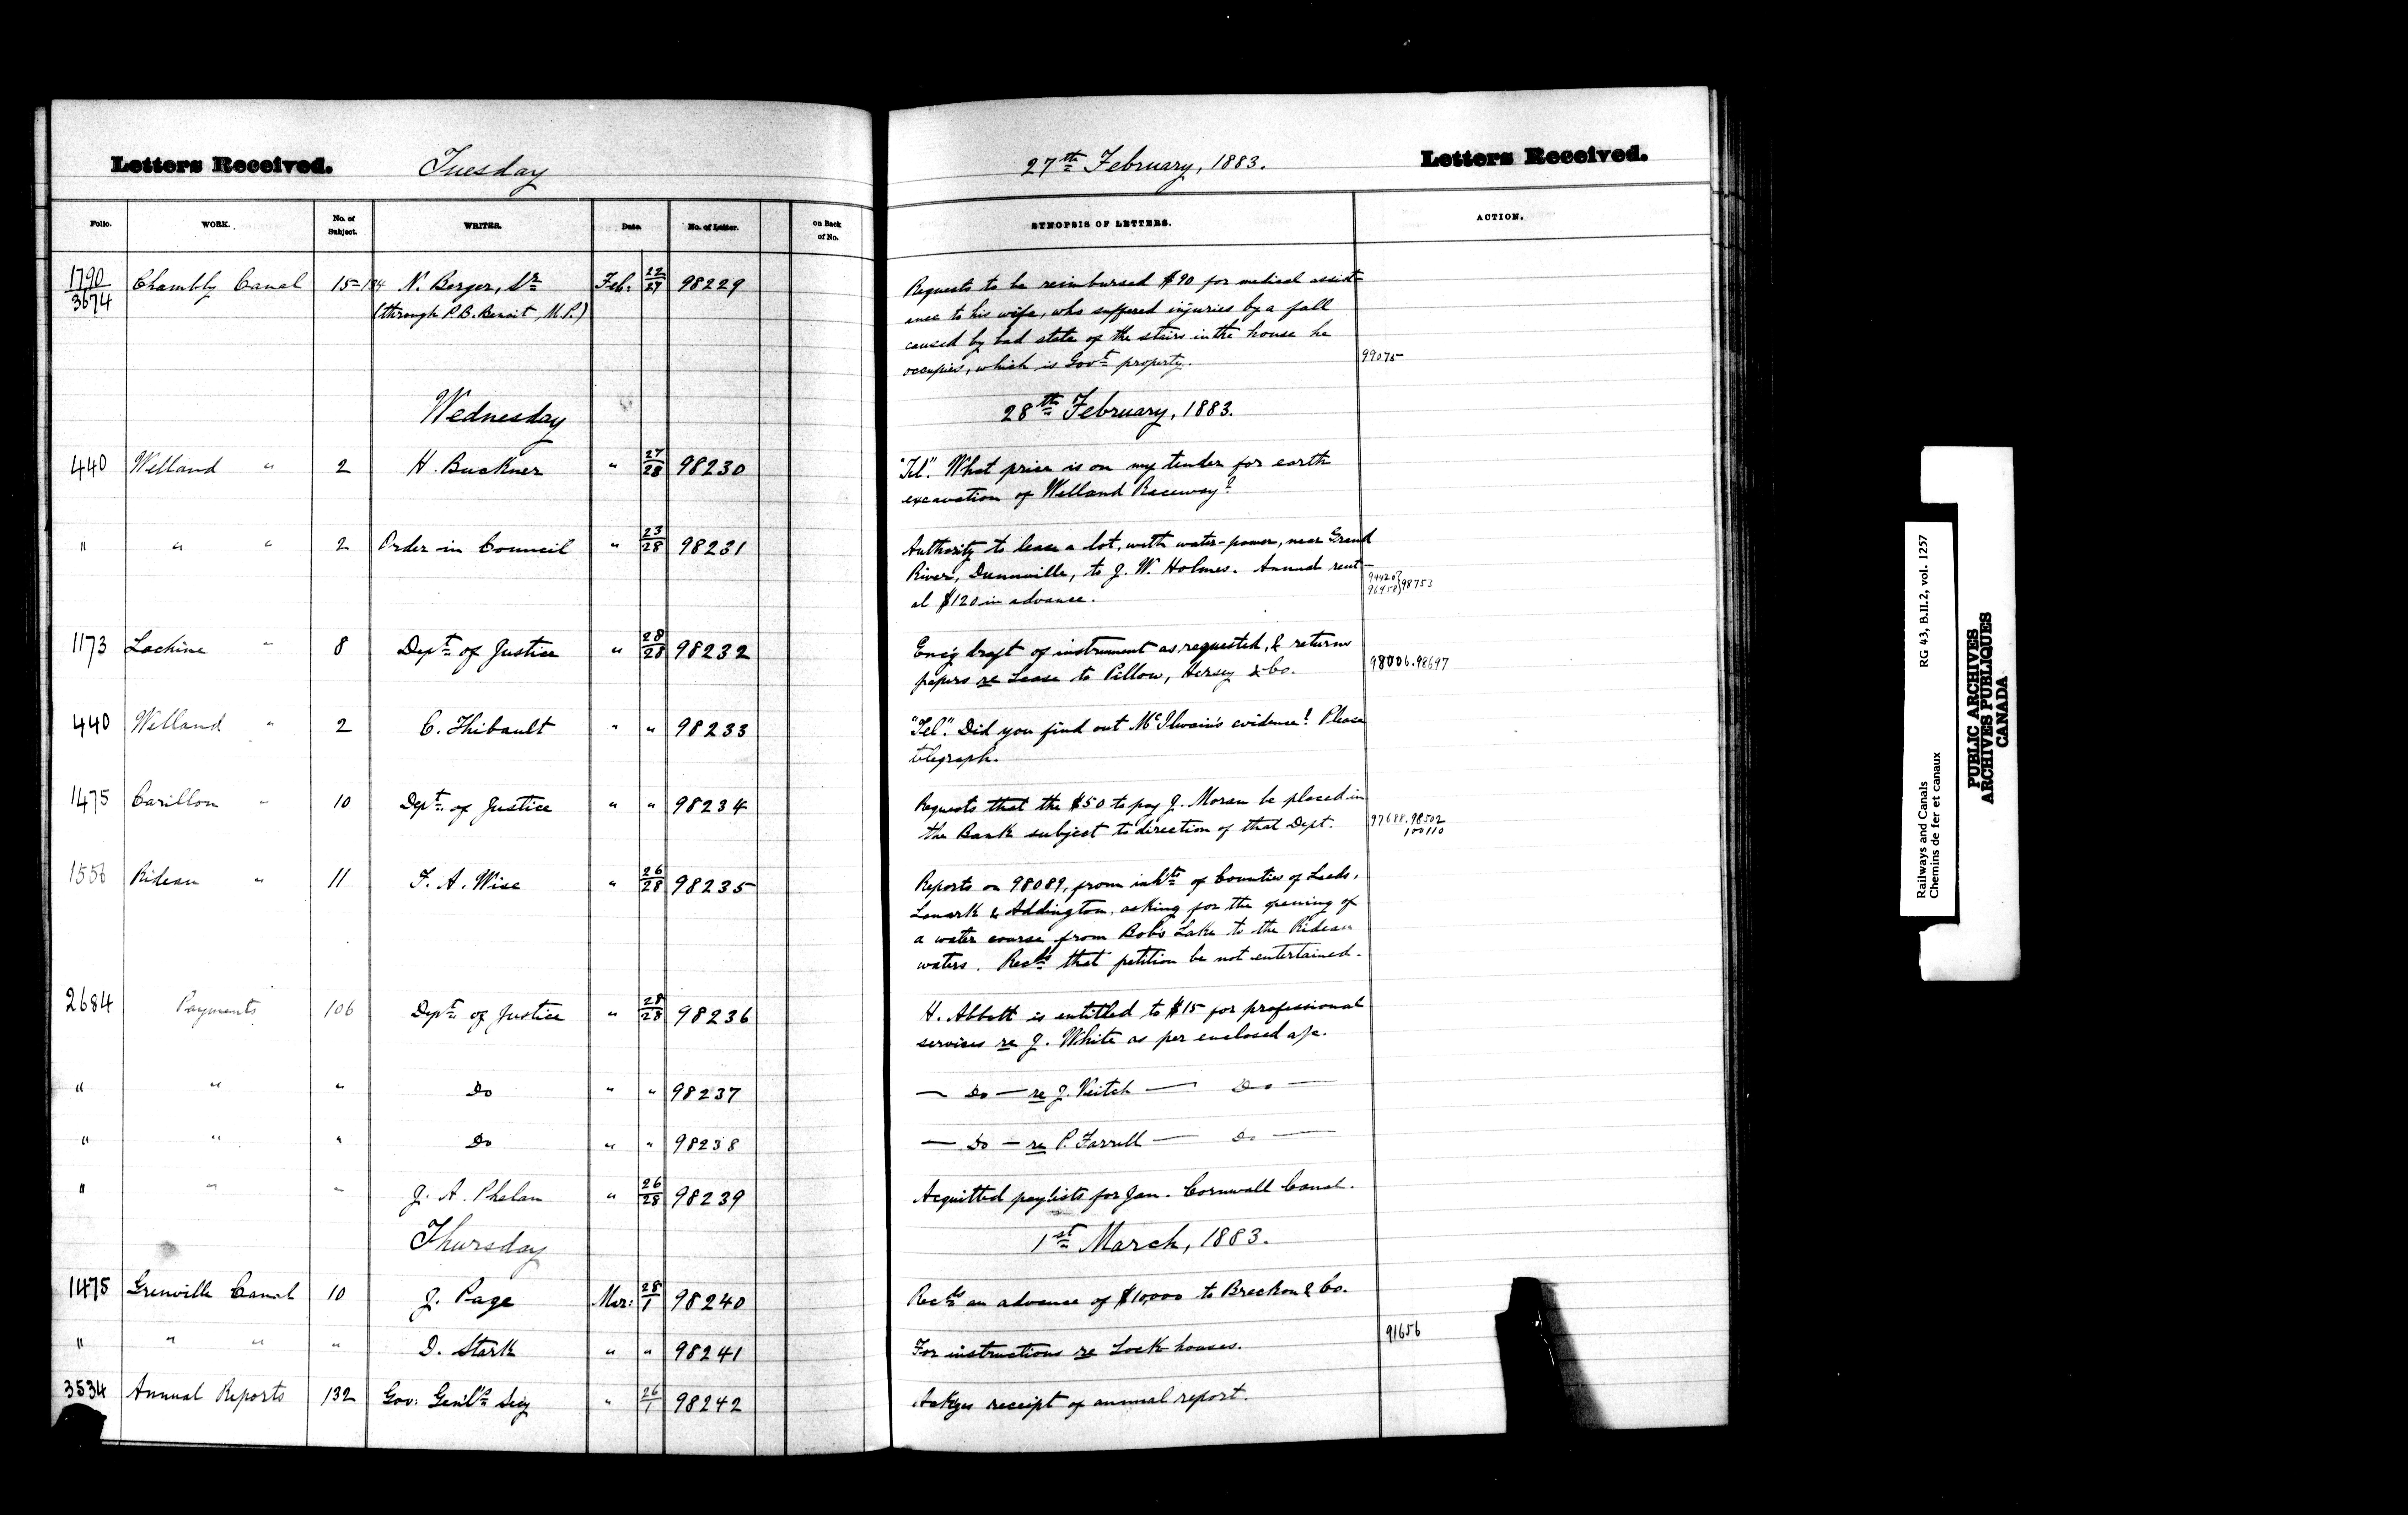 Letters Received. Tuesday 27th February, 1883. Letters Received.
Folio. WORK. No. of Subject. WRITER. Date. No. of Letter. on Back of No. SYNOPSIS OF LETTERS. ACTION.
1790/3674 Chambly Canal 15=134 N. Berger, Sr Feb. 22/27 98229 Requests to be reimbursed $90 for medical assist-
(through P.B. Benoit, M.P.) ance to his wife, who suffered injuries by a fall
caused by bad state of the stairs in the house he
occupies, which is Govt property. 99075
Wednesday 28th February, 1883.
440 Welland " 2 H. Buckner " 27/28 98230 "Tel". What price is on my tender for earth
excavation of Welland Raceway?
" " " 2 Order in Council " 23/28 98231 Authority to lease a lot, with water-power, near Grand
River, Dunnville, to J. W. Holmes. Annual rent-
al $120 in advance. 94420 96458 } 98753
1173 Lachine " 8 Dept of Justice " 28/28 98232 Enc'g draft of instrument as requested, & returns
papers re Lease to Pillow, Hersey & Co. 98006.98697
440 Welland " 2 C. Thibault " " 98233 "Tel". Did you find out McIlwain's evidence? Please
telegraph.
1475 Carillon " 10 Dept of Justice " " 98234 Requests that the $50 to pay J. Moran be placed in
the Bank subject to direction of that Dept. 97688.98502
100110
1556 Rideau " 11 F. A. Wise " 26/28 98235 Reports on 98089, from inhts of Counties of Leeds,
Lanark & Addington, asking for the opening of
a water course from Bob's Lake to the Rideau
waters. Recds that petition be not entertained.
2684 Payments 106 Dept of Justice " 28/28 98236 H. Abbott is entitled to $15 for professional
services re J. White as per enclosed a/c.
" " " Do " " 98237 — Do — re J. Veitch — Do —
" " " Do " " 98238 — Do — re P. Farrell — Do —
" " " J. A. Phelan " 26/28 98239 Acquitted paylists for Jan. Cornwall Canal.
Thursday 1st March, 1883.
1475 Grenville Canal 10 J. Page Mar: 28/1 98240 Recds an advance of $10,000 to Breckon & Co.
" " " " D. Stark " " 98241 For instructions re Lock-houses. 91656
3534 Annual Reports 132 Gov: Genl's Secy " 26/1 98242 Ackges receipt of annual report.
Railways and Canals RG 43, B.II.2, vol. 1257
Chemins de fer et canaux
PUBLIC ARCHIVES
ARCHIVES PUBLIQUES
CANADA